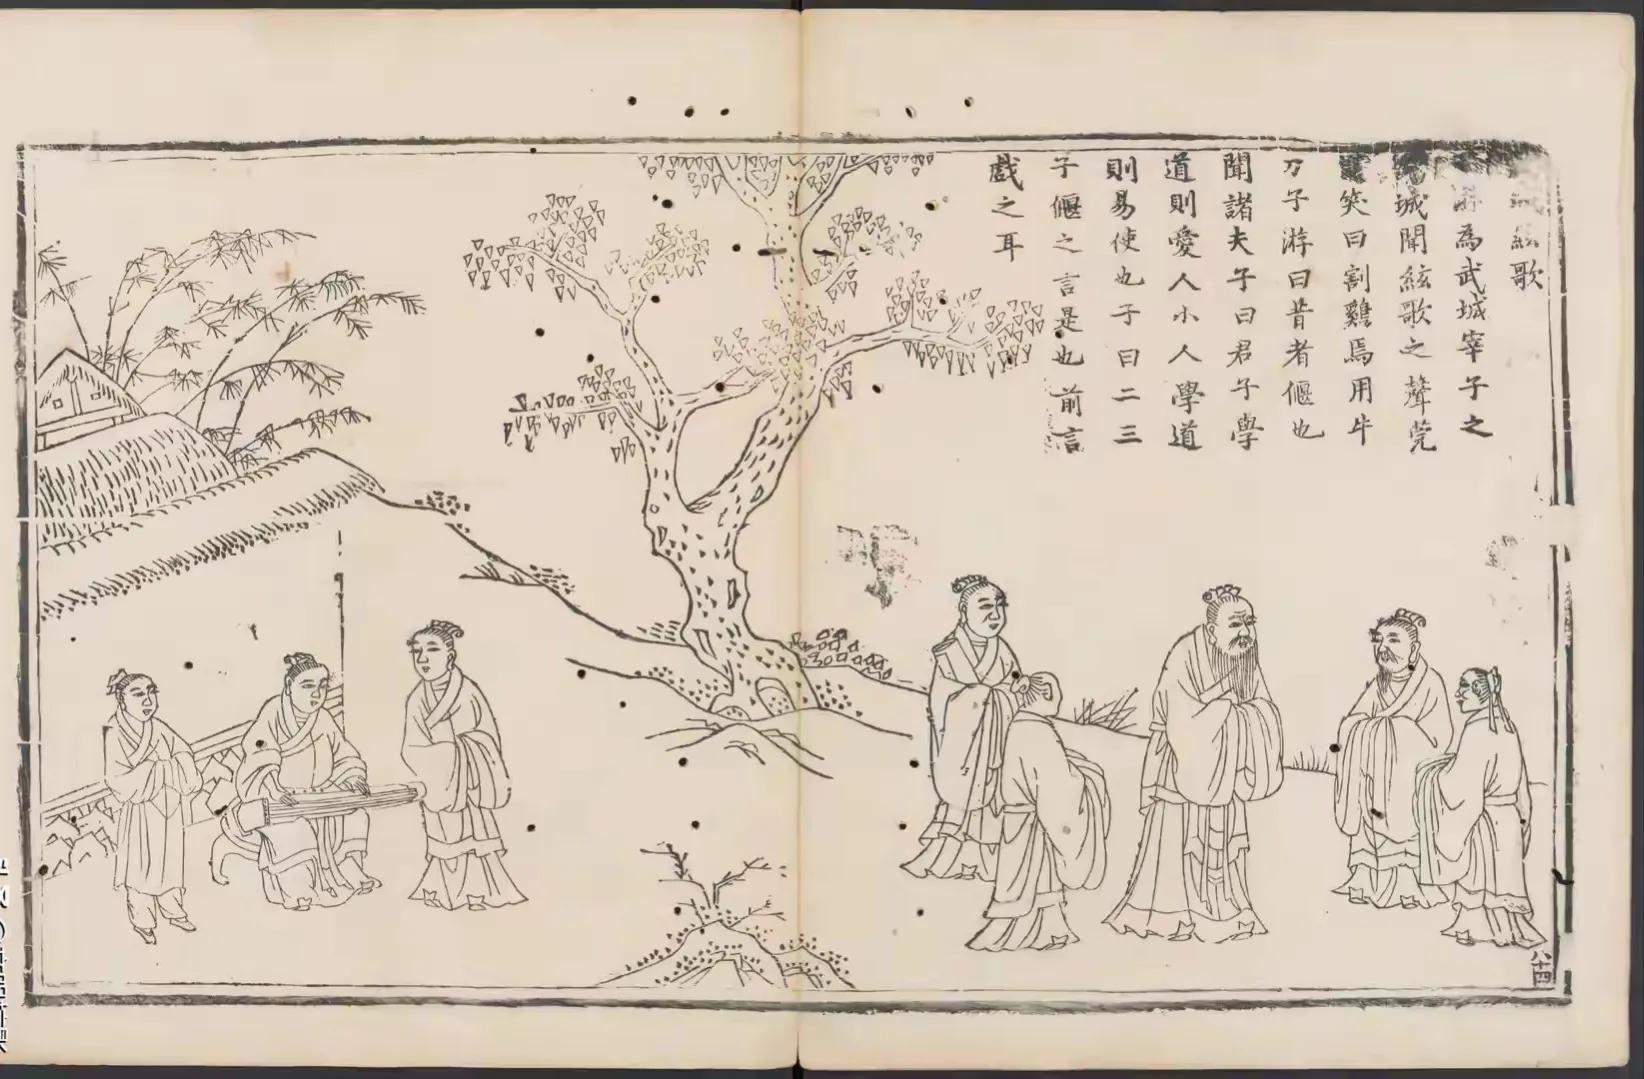 城絃歌
游為武城宰子之
城聞絃歌之聲莞
笑曰割雞焉用牛
刀子游曰昔者偃也
聞諸夫子曰君子學
道則愛人小人學道
則易使也子曰二三
子偃之言是也前言
戲之耳
八十四